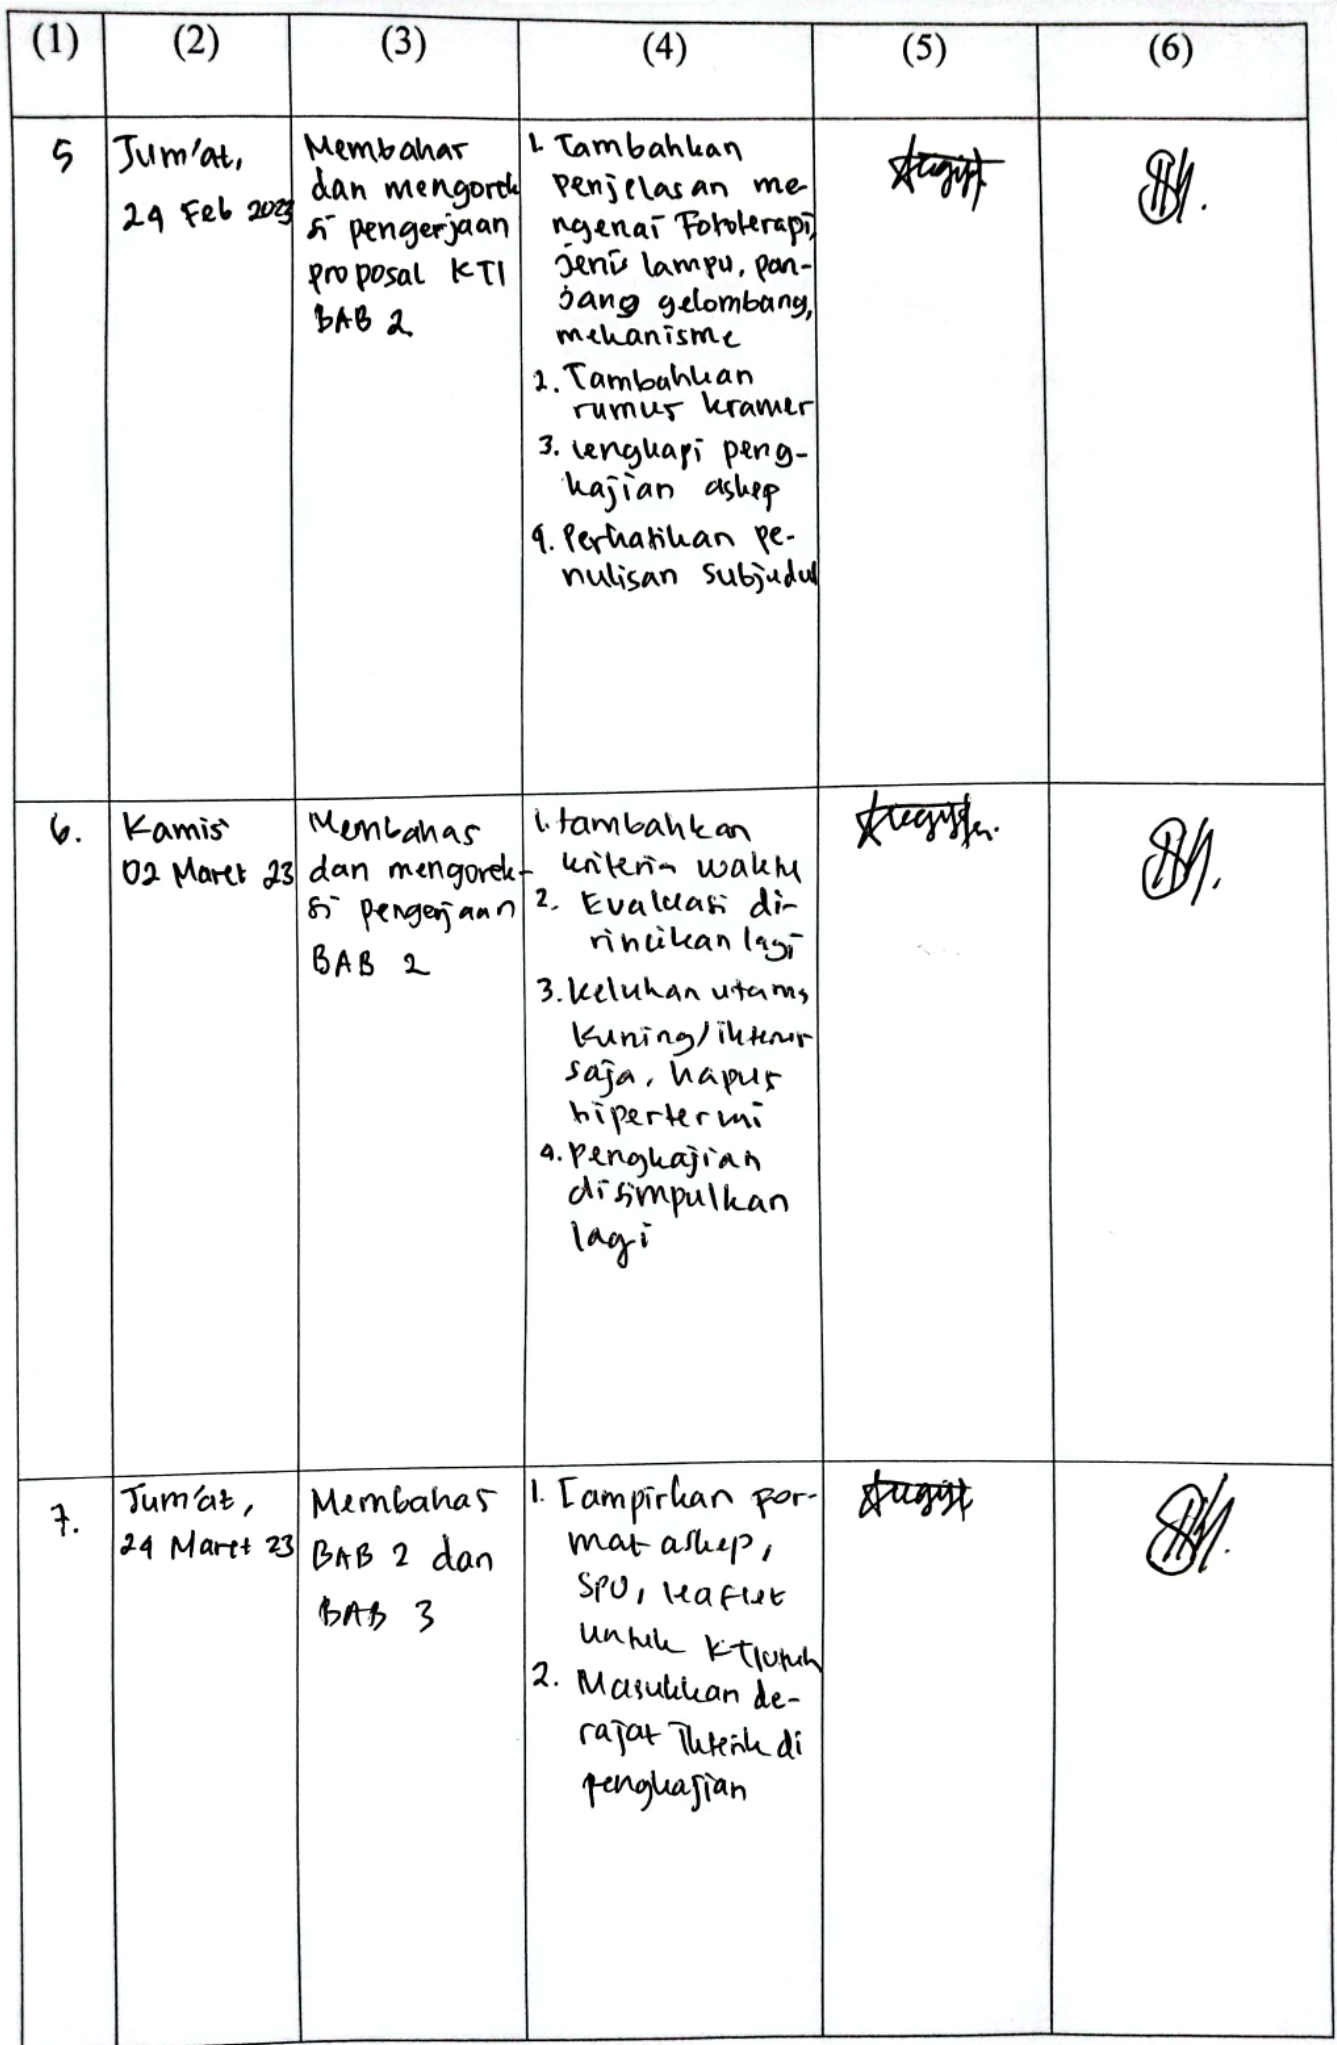 (1) (2) (3) (4) (5) (6)
5
Jum'at,
24 Feb 2023
Membahas
dan mengorek
si pengerjaan
proposal KTI
BAB 2
1. Tambahkan
penjelasan me-
ngenai Fototerapi,
jenis lampu, pan-
jang gelombang,
mekanisme
2. Tambahkan
rumus kramer
3. Lengkapi peng-
kajian askep
4. Perhatikan pe-
nulisan subjudul
6.
Kamis
02 Maret 23
Membahas
dan mengorek-
si pengerjaan
BAB 2
1. tambahkan
kriteria waktu
2. Evaluasi di-
rincikan lagi
3. keluhan utama
kuning/ikterus
saja, hapus
hipertermi
4. Pengkajian
disimpulkan
lagi
7.
Jum'at,
24 Maret 23
Membahas
BAB 2 dan
BAB 3
1. Lampirkan por-
mat askep,
SPO, leaflet
untuk KTI
2. Masukkan de-
rajat Ikterik di
pengkajian